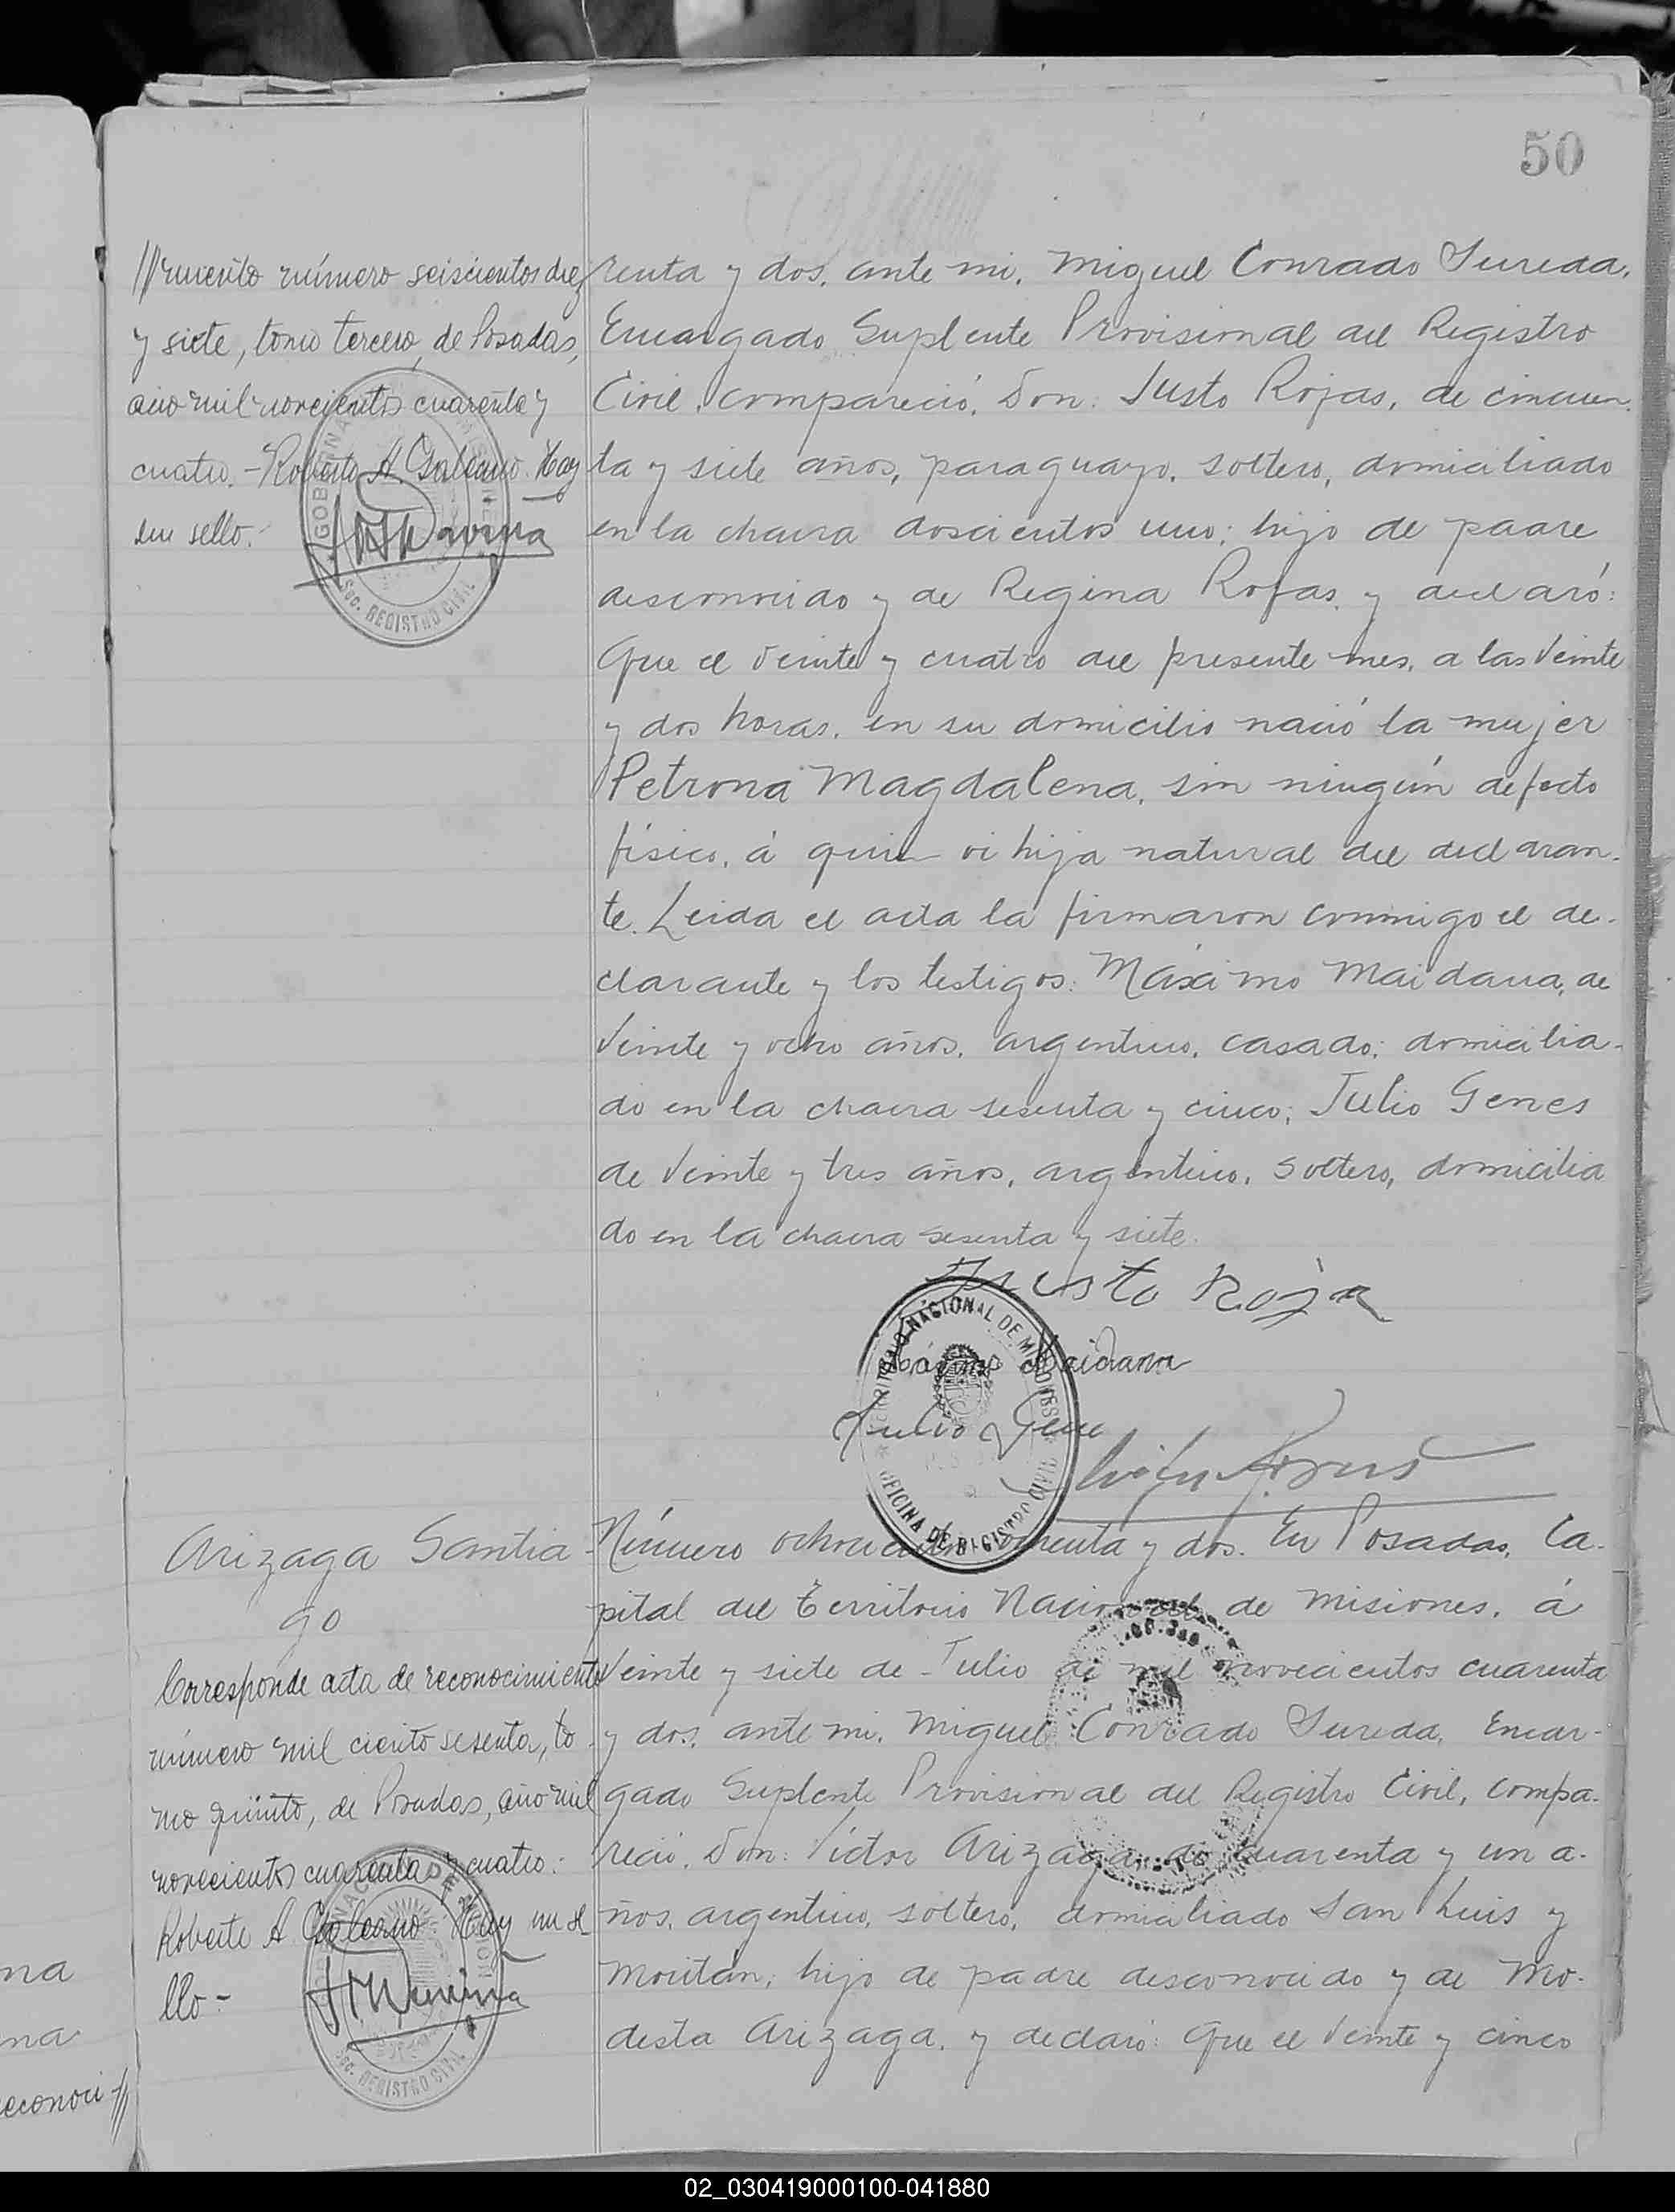 50
//miento número seiscientos diez
y siete, tomo tercero, de Posadas,
año mil novecientos cuarenta y
cuatro. - Roberto A. Galeano. Hay
un sello.-
GOBERNA
SEC. REGISTRO CIVIL
renta y dos, ante mi, Miguel Conrado Sureda,
Encargado Suplente Provisional del Registro
Civil, compareció, Don: Justo Rojas, de cincuen-
ta y siete años, paraguayo, soltero, domiciliado
en la chacra doscientos uno; hijo de padre
desconocido y de Regina Rojas, y declaró:
Que el veinte y cuatro del presente mes, a las veinte
y dos horas, en su domicilio nació la mujer
Petrona Magdalena, sin ningún defecto
físico, á quien vi hija natural del declaran-
te. Leida el acta la firmaron conmigo el de-
clarante y los testigos: Máximo Maidana, de
veinte y ocho años, argentino, casado; domicilia-
do en la chacra sesenta y cinco; Julio Genes
de veinte y tres años, argentino, soltero, domicilia
do en la chacra sesenta y siete.
Justo Roja
Máximo Maidana
Julio Gene
TERRITORIO NACIONAL DE MISIONES
OFICINA DE REGISTRO CIVIL
Arizaga Santia-
go
Corresponde acta de reconocimiento
número mil ciento sesenta, to-
mo quinto, de Posadas, año mil
novecientos cuarenta y cuatro.-
Roberto A Galeano Hay un se
llo-
SEC. REGISTRO CIVIL
Número ochocientos cuenta y dos. En Posadas, Ca-
pital del Territorio Nacional de Misiones, á
veinte y siete de Julio de mil novecientos cuarenta
y dos, ante mi, Miguel Conrado Sureda, Encar-
gado Suplente Provisional del Registro Civil, compa-
reció, Don: Víctor Arizaga, de cuarenta y un a-
ños, argentino, soltero, domiciliado San Luis y
Moritán; hijo de padre desconocido y de Mo-
desta Arizaga, y declaró: Que el veinte y cinco
na
na
econoci-//
02_030419000100-041880